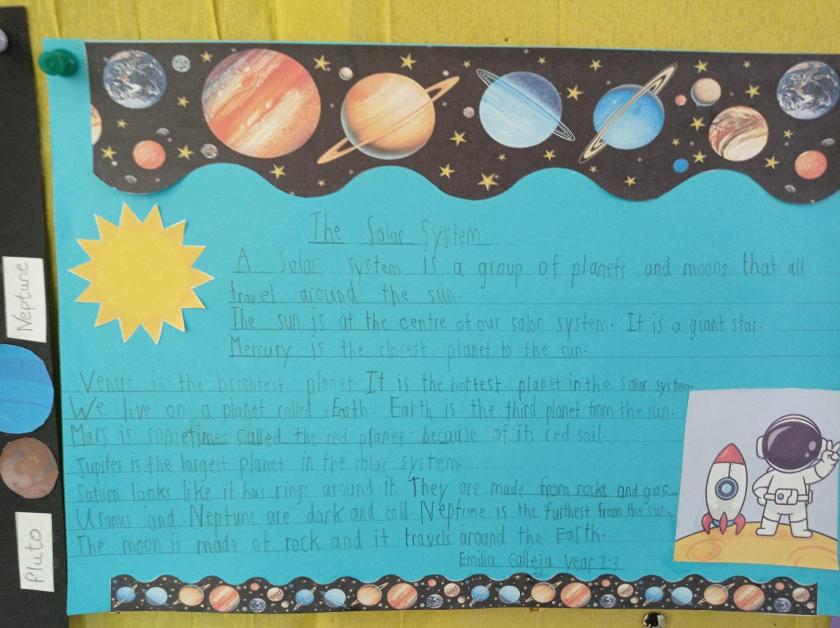 The Solar System
A Solar system is a group of planets and moons that all
travel around the sun.
The sun is at the centre of our solar system. It is a giant star.
Mercury is the closest planet to the sun.
Venus is the brightest planet. It is the hottest planet in the solar system.
We live on a planet called Earth. Earth is the third planet from the sun.
Mars is sometimes called the red planet because of its red soil.
Jupiter is the largest planet in the solar system.
Saturn looks like it has rings around it. They are made from rocks and gas.
Uranus and Neptune are dark and cold. Neptune is the furthest from the sun.
The moon is made of rock and it travels around the Earth.
Emilia Calleja year 2-3
Neptune
Pluto